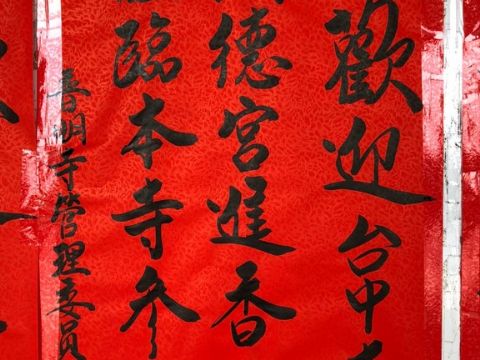 歡迎台中
德宮進香
臨本寺參
普明寺管理委員